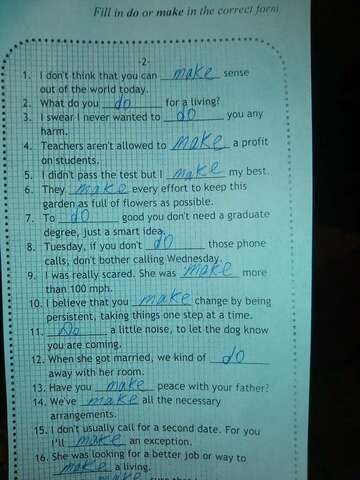 Fill in do or make in the correct form
-2-
1. I don't think that you can make sense
out of the world today.
2. What do you do for a living?
3. I swear I never wanted to do you any
harm.
4. Teachers aren't allowed to make a profit
on students.
5. I didn't pass the test but I make my best.
6. They make every effort to keep this
garden as full of flowers as possible.
7. To do good you don't need a graduate
degree, just a smart idea.
8. Tuesday, if you don't do those phone
calls, don't bother calling Wednesday.
9. I was really scared. She was make more
than 100 mph.
10. I believe that you make change by being
persistent, taking things one step at a time.
11. Do a little noise, to let the dog know
you are coming.
12. When she got married, we kind of do
away with her room.
13. Have you make peace with your father?
14. We've make all the necessary
arrangements.
15. I don't usually call for a second date. For you
I'll make an exception.
16. She was looking for a better job or way to
make a living.
make sure that